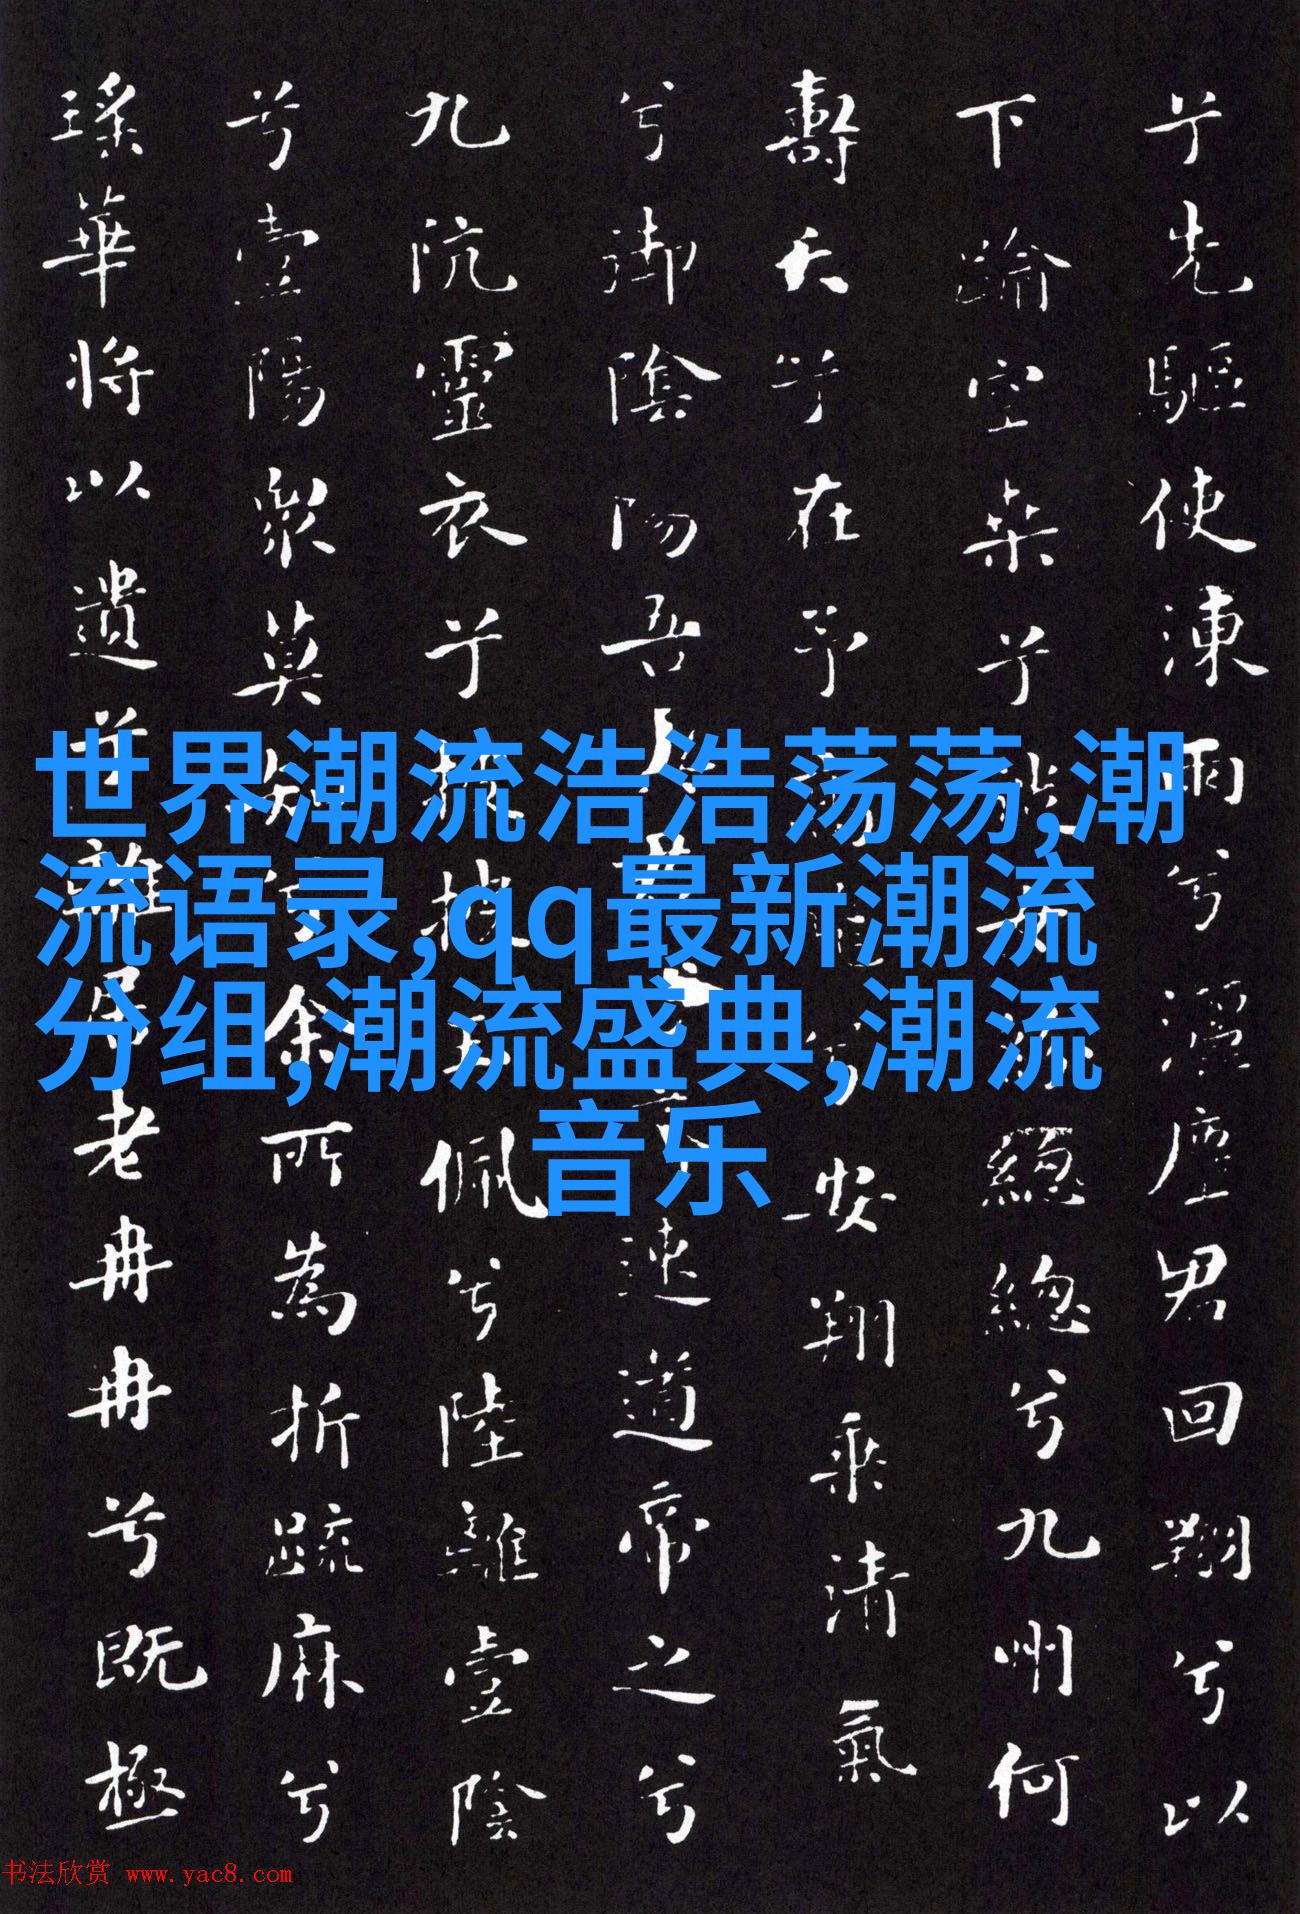 兮先驅使涷雨兮灑塵君回翔兮以
下踰空桑兮從女總總兮九州何
壽夭兮在予高飛兮安翔乘清氣
兮御陰陽吾速道帝之兮
九阬靈衣兮被被玉佩兮陸離壹陰
兮壹陽眾莫知兮余所為折疏麻兮
瑤華將以遺兮離居老冉冉兮既極
世界潮流浩浩荡荡,潮
流语录,qq最新潮流
分组,潮流盛典,潮流
音乐
书法欣赏 www.yac8.com